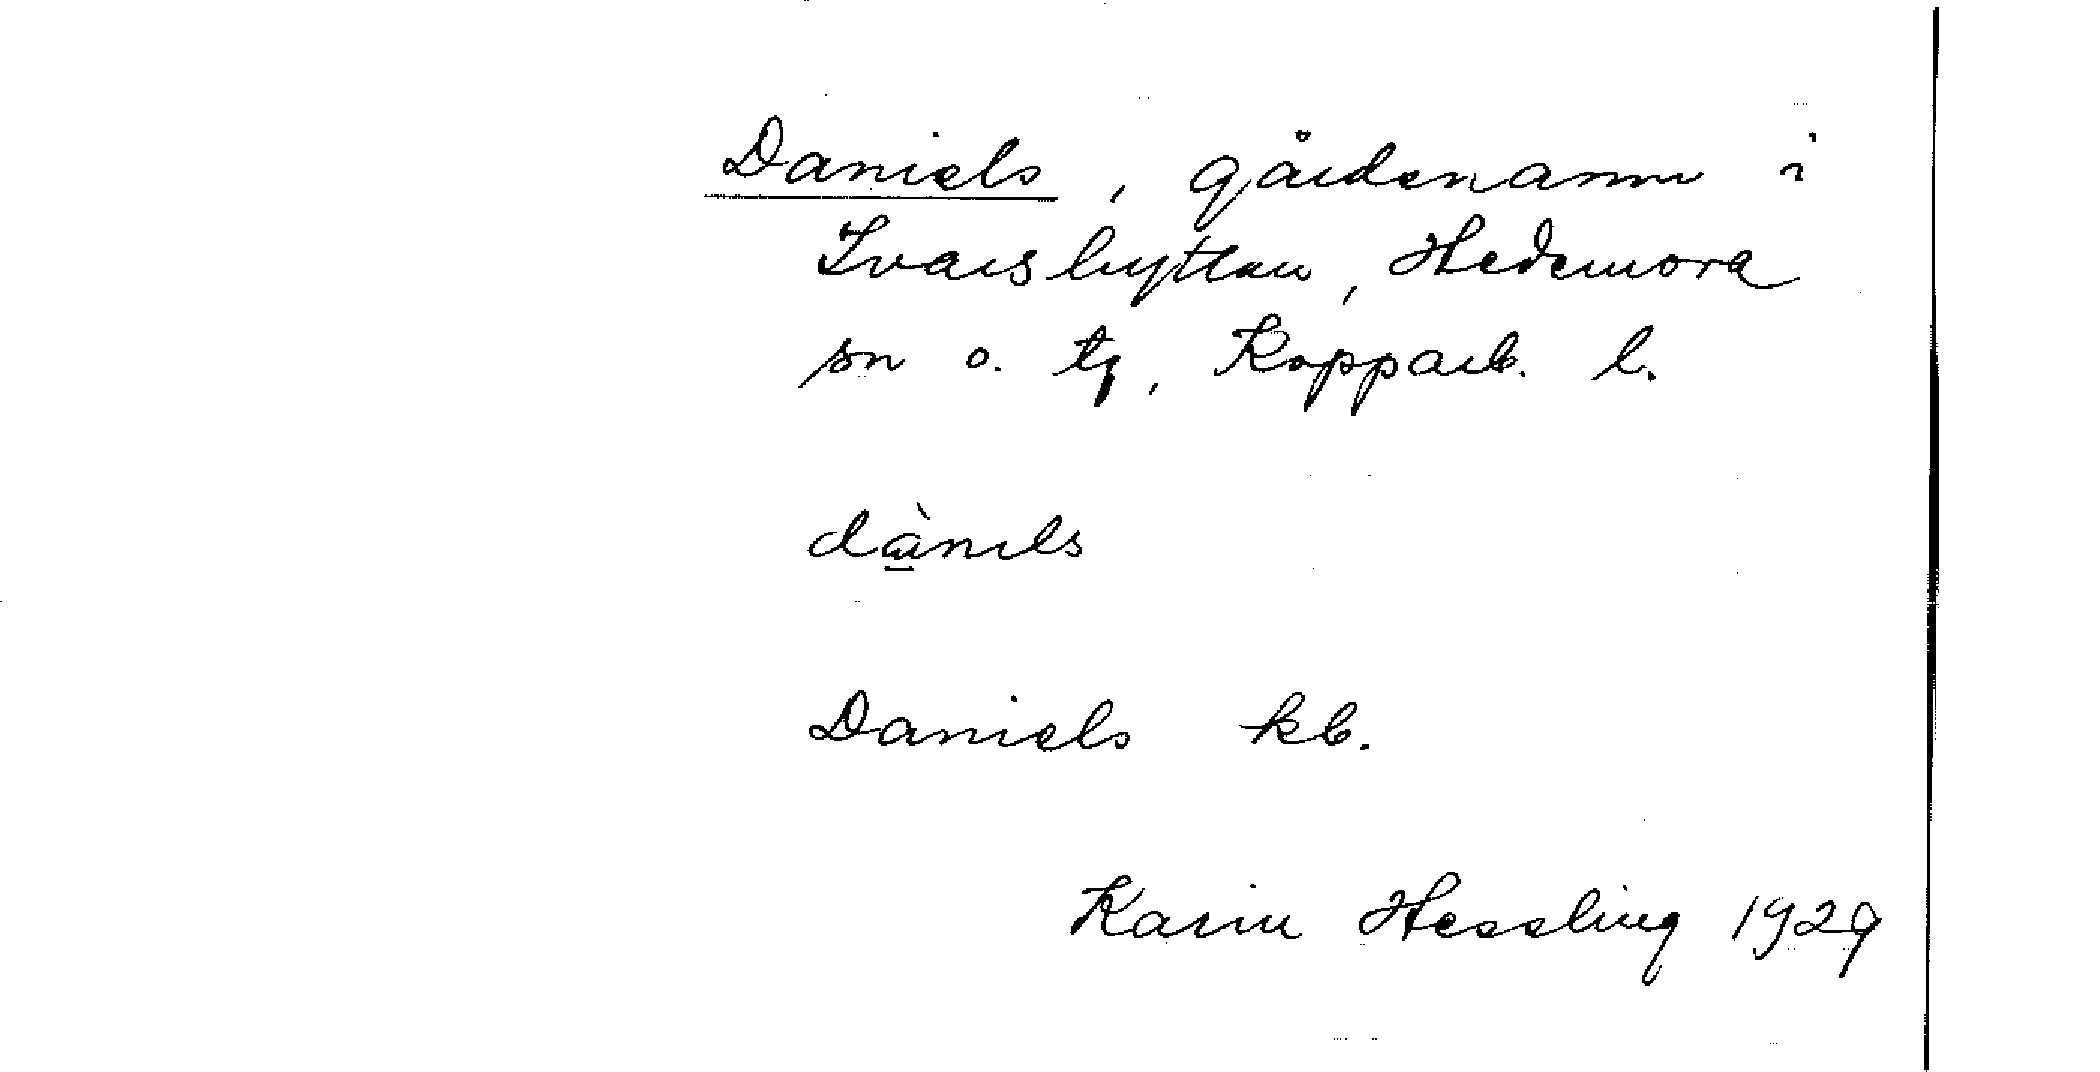 Daniels, gårdsnamn i
Ivarshyttan, Hedemora
sn o. tg, Kopparb. l.
dànıls
Daniels kb.
Karin Hessling 1929